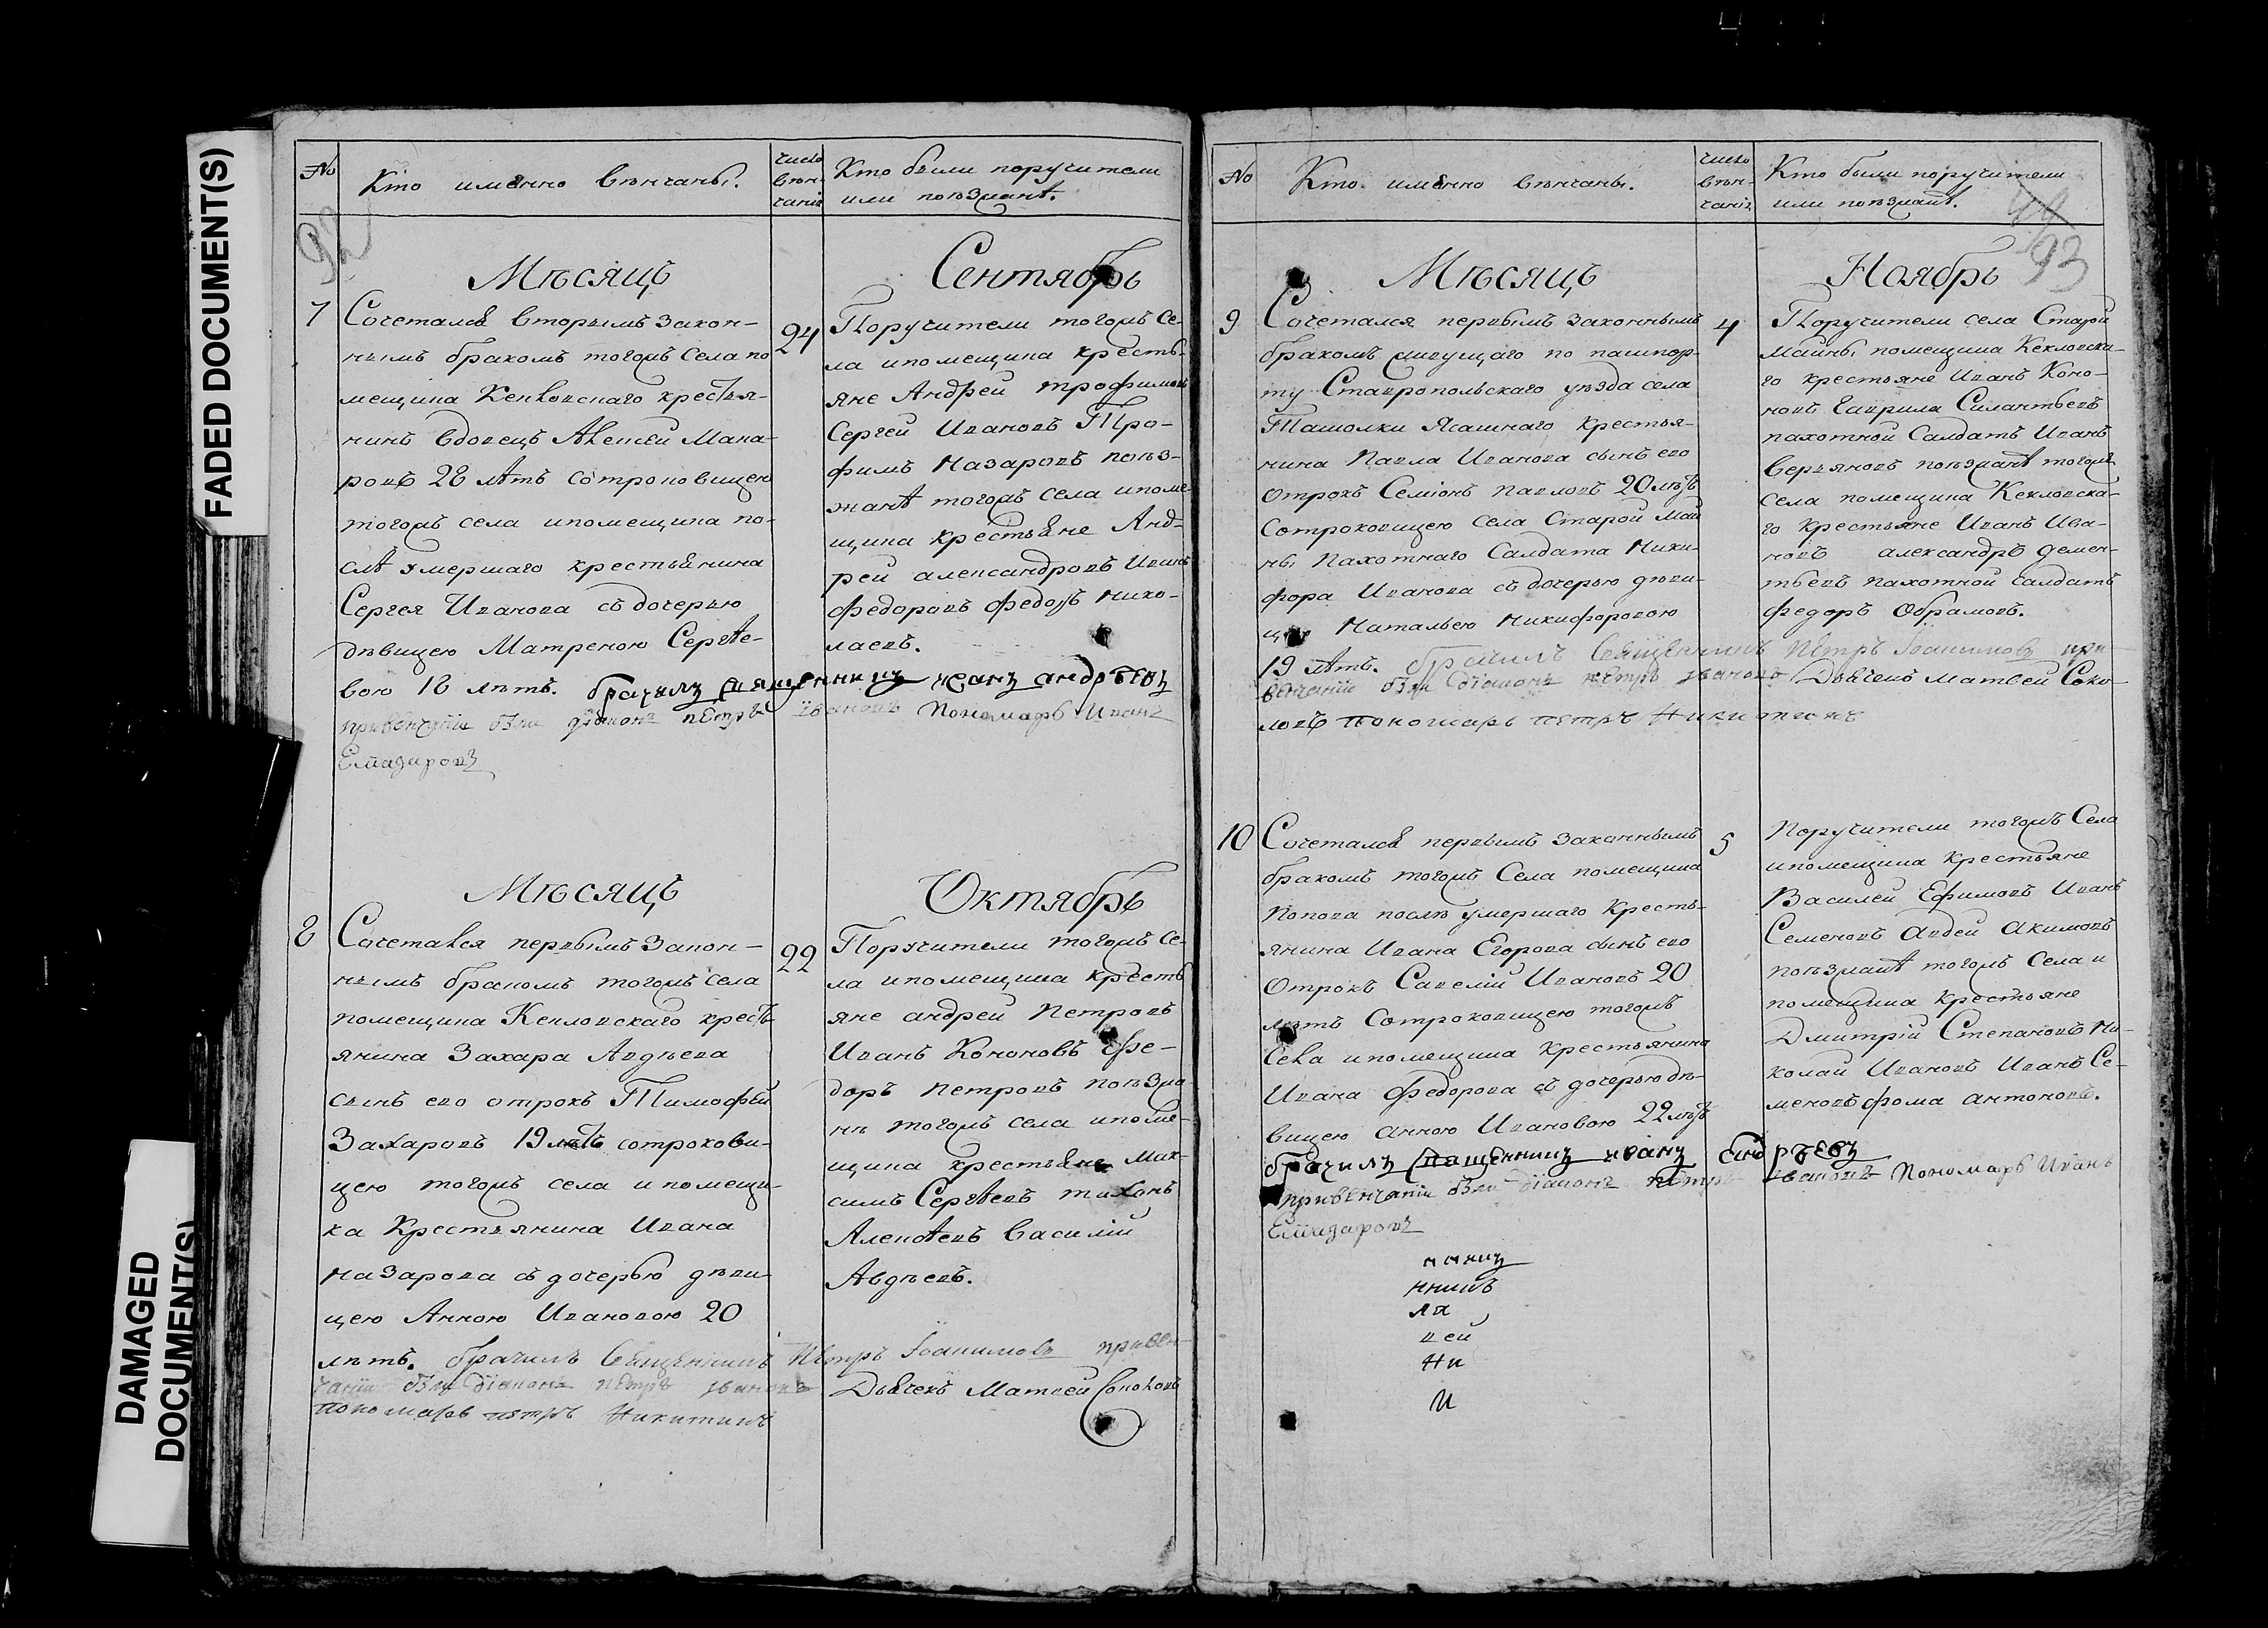 FADED DOCUMENT(S)
DAMAGED
DOCUMENT(S)
№
Кто именно венчаны.
число
вѣн-
чания
Кто были поручители
или поѣзжанѣ.
92
Мѣсяцъ
Сентябрь
7
Сочетался вторымъ закон-
нымъ бракомъ тогожъ села по
мещика Кекловскаго крестья-
нинъ вдовецъ Алексей Мака-
ровъ 28 лѣтъ сотроковицею
тогожъ села ипомещика по-
слѣ умершаго крестьянина
Сергея Иванова съ дочерью
дѣвицею Матреною Сергѣе-
вою 18 лѣтъ. брачилъ священникъ иванъ андрѣевъ
привенчании были диаконъ петръ ивановъ пономарь Иванъ
24
Поручители тогожъ се-
ла ипомещика кресть-
яне Андрей трофимовъ
Сергей Ивановъ Тро-
фимъ Назаровъ поѣз-
жанѣ тогожъ села ипоме
щика крестьяне Анд-
рей александровъ Иванъ
федоровъ федоръ нико-
лаевъ.
Мѣсяцъ
Октябрь
8
Сочетался первымъ закон-
нымъ бракомъ тогожъ села
помещика Кекловскаго кресть
янина Захара Авдѣева
сынъ его отрокъ Тимофей
Захаровъ 19 лѣтъ сотрокови-
цею тогожъ села ипомещи-
ка Крестьянина Ивана
Назарова съ дочерью дѣви-
цею Анною Ивановою 20
лѣтъ. брачилъ священникъ Петръ Иоакимовъ привен-
чании были диаконъ петръ ивановъ Дьячекъ Матвей Соколовъ
пономарь петръ Никитинъ
22
Поручители тогожъ се-
ла ипомещика кресть
яне андрей Петровъ
Иванъ Кононовъ Фе-
доръ Петровъ поѣзжа-
нѣ тогожъ села ипоме-
щика крестьяне Мак-
симъ Сергѣевъ тихонъ
Алексѣевъ Василий
Авдѣевъ.
№
Кто именно венчаны.
число
вѣн-
чания
Кто были поручители
или поѣзжанѣ.
93
Мѣсяцъ
Ноябрь
9
Сочетался первымъ законнымъ
бракомъ живущаго по пашпор-
ту Ставропольскаго уѣзда села
Ташолки Ясашнаго крестья-
нина Павла Иванова сынъ его
отрокъ Семионъ павловъ 20 лѣтъ
Сотроковицею села Старой Май
ны Пахотнаго Салдата Ники-
фора Иванова съ дочерью дѣви-
цею Натальею Никифоровою
19 лѣтъ. брачилъ священникъ Петръ Иоакимовъ при-
венчании были диаконъ петръ ивановъ Дьячекъ Матвей Соко-
ловъ пономарь петръ Никитинъ
4
Поручители села Старой
Майны помещика Кекловска-
го крестьяне Иванъ Коно-
новъ Гаврила Силантьевъ
пахотной Салдатъ Иванъ
Верьяновъ поѣзжанѣ тогожъ
села помещика Кекловска-
го крестьяне Иванъ Ива-
новъ александръ демен-
тьевъ пахотной салдатъ
федоръ Обрамовъ.
10
Сочетался первымъ законнымъ
бракомъ тогожъ Села помещика
Попова послѣ умершаго Кресть-
янина Ивана Егорова сынъ его
Отрокъ Савелий Ивановъ 20
лѣтъ Сотроковицею тогожъ
Села ипомещика Крестьянина
Ивана Федорова съ дочерью дѣ-
вицею анною Ивановою 22 лѣтъ
брачилъ священникъ иванъ андрѣевъ
привенчании были диаконъ петръ ивановъ Пономарь Иванъ
5
Поручители тогожъ Села
ипомещика крестьяне
Василей Ефимовъ Иванъ
Семеновъ авдей акимовъ
поѣзжанѣ тогожъ Села и
помещика Крестьяне
Дмитрий Степановъ Ни-
колай Ивановъ Иванъ Се-
меновъ фома антоновъ.
вей
Ни
И